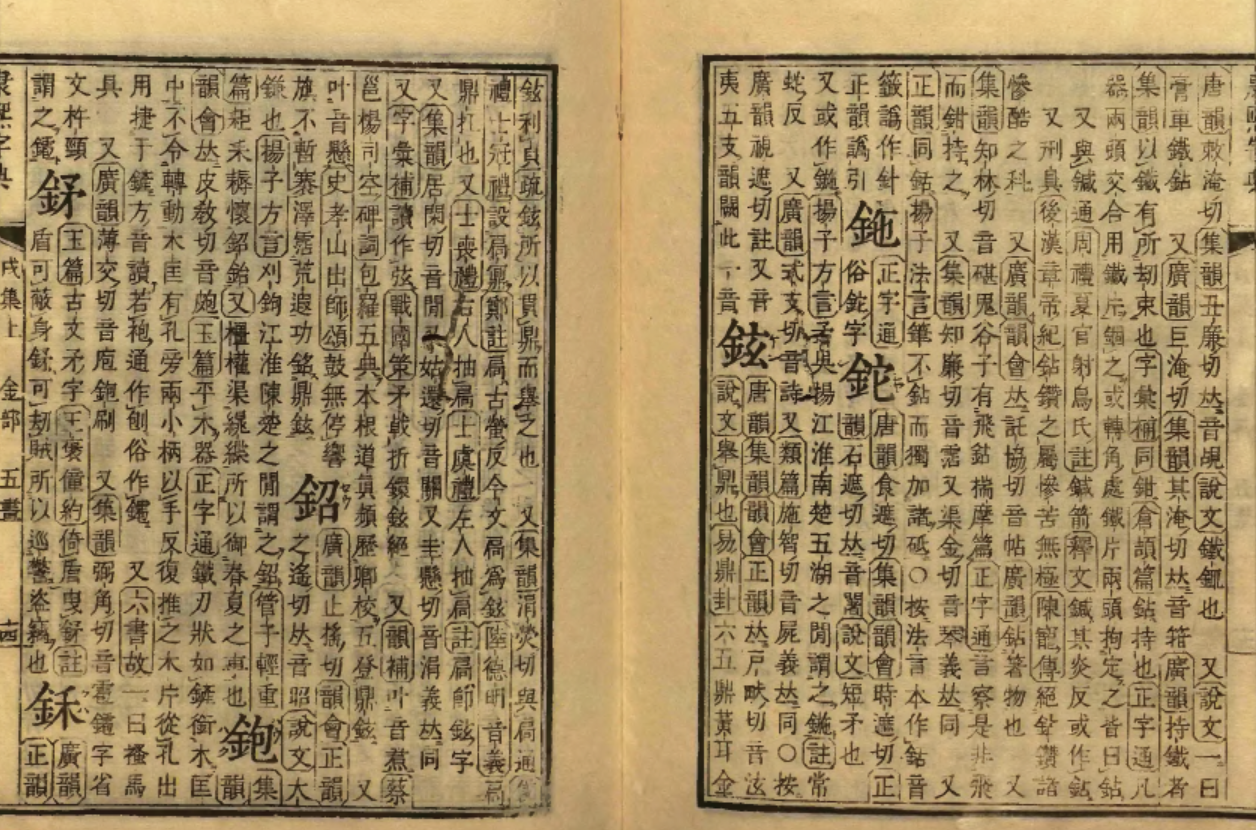 唐韻敕淹切集韻丑廉切𠀤音覘說文鐵鉔也 又說文一曰
膏車鐵鉆 又廣韻巨淹切集韻其淹切𠀤音箝廣韻持鐵者
集韻以鐵有所劫束也字彙補同鉗倉頡篇鉆持也正字通凡
器兩頭交合用鐵片錮之或轉角處鐵片兩頭拘定之皆曰鉆
又與鍼通周禮夏官射鳥氏註鍼箭釋文鍼其炎反或作鉆
又刑具後漢章帝紀鉆鑽之屬慘苦無極陳寵傳絕鉆鑽諸
慘酷之科 又廣韻韻會𠀤託協切音帖廣韻鉆著物也 又
集韻知林切音碪鬼谷子有飛鉆揣摩篇正字通言察是非飛
而鉗持之 又集韻知廉切音霑又渠金切音琴義𠀤同 又
正韻同鉆揚子法言筆不鉆而獨加諸砥○按法言本作鉆音
籤譌作針
正韻譌引
鉇 正字通
俗鉈字
鉈 唐韻食遮切集韻韻會時遮切正
韻石遮切𠀤音闍說文短矛也
又或作鍦揚子方言矛吳揚江淮南楚五湖之閒謂之鍦註常
蛇反 又廣韻式支切音詩又類篇施智切音屍義𠀤同○按
廣韻視遮切註又音
夷五支韻闕此一音
鉉 唐韻集韻韻會正韻𠀤戸畎切音泫
說文舉鼎也易鼎卦六五鼎黃耳金
鉉利貞疏鉉所以貫鼎而舉之也 又集韻涓熒切與扃通
禮士冠禮設扃鼏鄭註扃古螢反今文扃爲鉉陸德明音義扃
鼎扛也 又士喪禮右人抽扃士虞禮左人抽扃註扃師鉉字
又集韻居閑切音閒又姑還切音關又圭懸切音涓義𠀤同
又字彙補讀作弦戰國策矛戟折鐶鉉絕 又韻補叶音煮蔡
邕楊司空碑詞包羅五典本根道眞頻歷卿校五登鼎鉉 又
叶音懸史孝山出師頌鼓無停響
旗不暫褰澤霑荒遐功銘鼎鉉
鉊 廣韻止搖切韻會正韻
之遙切𠀤音昭說文大
鎌也揚子方言刈鉤江淮陳楚之閒謂之鉊管子輕重
篇耟耒耨懷鉊鈶又橿權渠繉緤所以御春夏之事也
鉋 集
韻
韻會𠀤皮敎切音皰玉篇平木器正字通鐵刃狀如鏟銜木匡
中不令轉動木匡有孔旁兩小柄以手反復推之木片從孔出
用捷于鏟方音讀若袍通作刨俗作鑤 又六書故一曰搔馬
具 又廣韻薄交切音庖鉋刷 又集韻弼角切音雹鑤字省
文杵頸
謂之鑤
𨥨 玉篇古文矛字王褒僮約倚盾曳𨥨註
盾可蔽身𨥨可劫賊所以巡警盜竊也
鉌 廣韻
正韻
戌集上 金部 五畫 十四